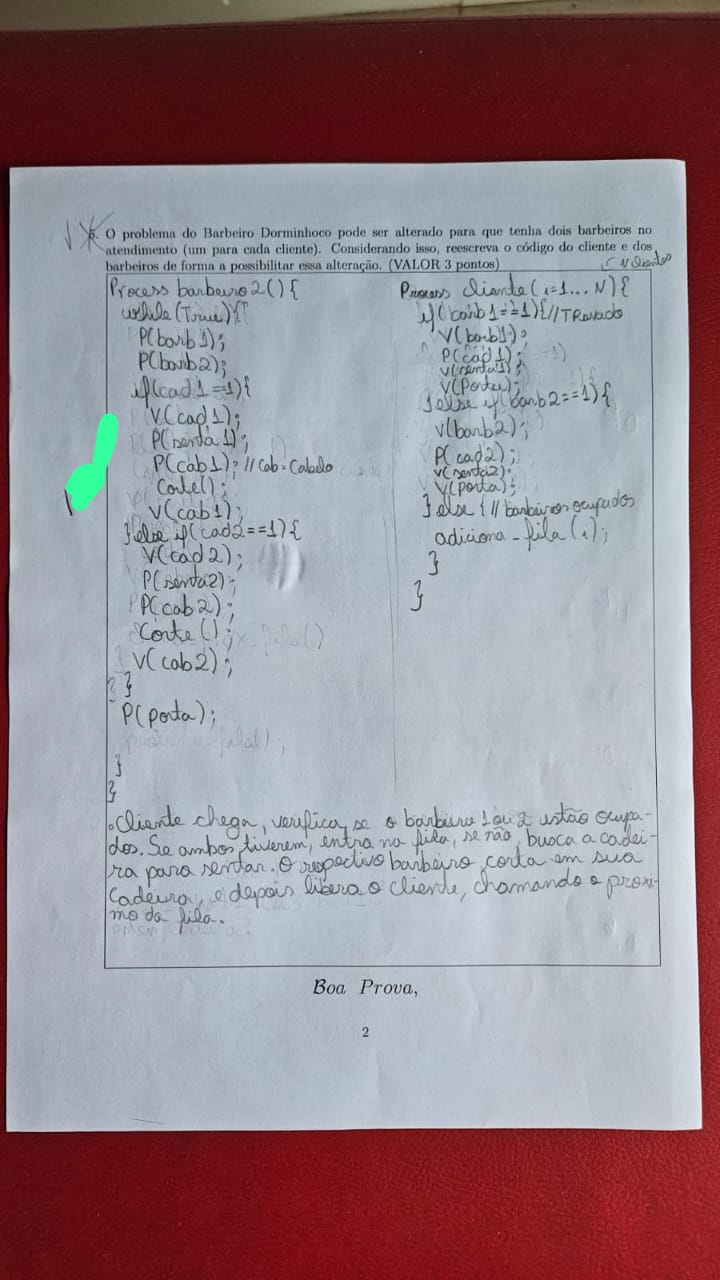 6. O problema do Barbeiro Dorminhoco pode ser alterado para que tenha dois barbeiros no
atendimento (um para cada cliente). Considerando isso, reescreva o código do cliente e dos
barbeiros de forma a possibilitar essa alteração. (VALOR 3 pontos)
Process barbeiro2(){
while(True){
P(barb1);
P(barb2);
if(cad1==1){
V(cad1);
P(senta1);
P(cab1); // Cab = Cabelo
Corte();
V(cab1);
}else if(cad2==1){
V(cad2);
P(senta2);
P(cab2);
Corte();
V(cab2);
}
}
P(porta);
}
}
N clientes
Process cliente(i=1...N){
if(barb1==1){//TRavado
V(barb1);
P(cad1);
V(senta1);
V(Porta);
}else if(barb2==1){
V(barb2);
P(cad2);
V(senta2);
V(porta);
}else{// barbeiros ocupados
adiciona_fila(i);
}
}
.Cliente chega, verifica, se o barbeiro 1 ou 2 estão ocupa-
dos. Se ambos tiverem, entra na fila, se não, busca a cadei-
ra para sentar. O respectivo barbeiro, corta em sua
Cadeira, e depois libera o cliente, chamando o proxi-
mo da fila.
Boa Prova,
2